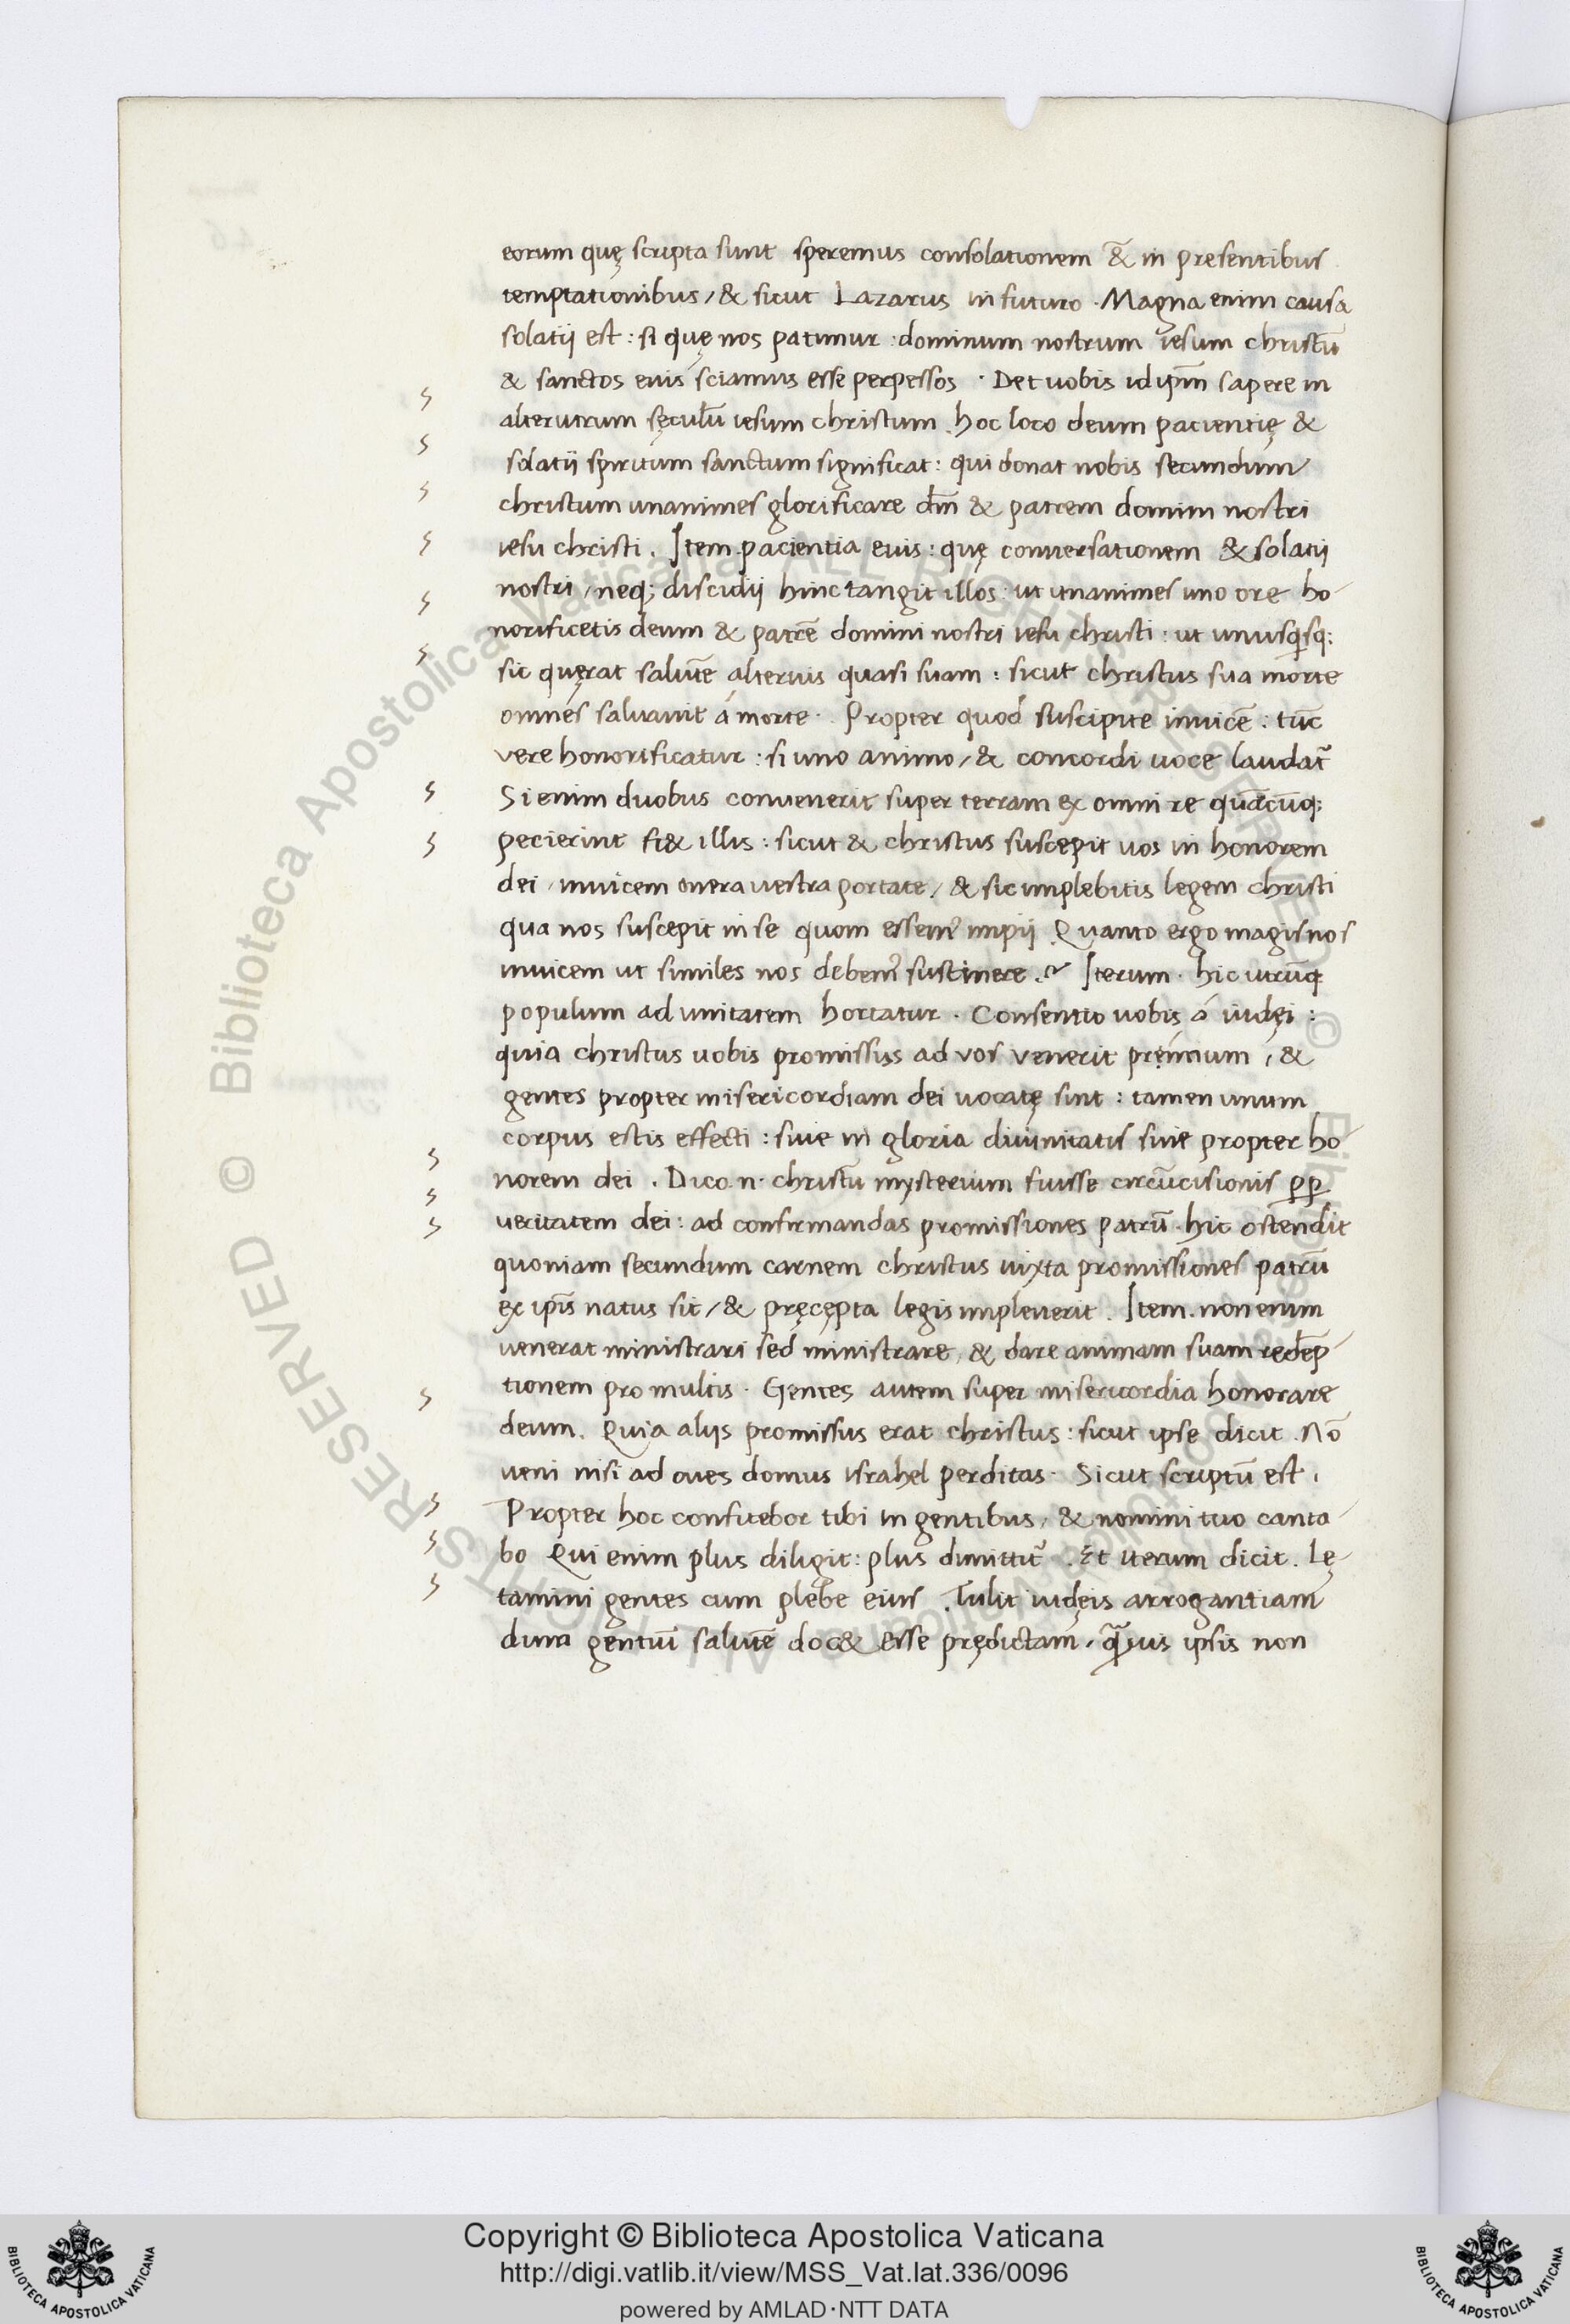 eorum quę scripta sunt speremus consolationem & in presentibus
temptationibus / & sicut Lazarus in futuro . Magna enim causa
solatii est : si quę nos patimur : dominum nostrum iesum christū
& sanctos eius sciamus esse perpessos . Det uobis id ipm̄ sapere in
alterutrum sęculū iesum christum . hoc loco deum pacientię &
solatii spiritum sanctum significat : qui donat nobis secundum
christum unanimes glorificare dm̄ & patrem domini nostri
iesu christi . Item . pacientia eius : quę conuersationem & solatii
nostri / neq; discidii hinc tangit illos : ut unanimes uno ore ho-
norificetis deum & patrē domini nostri iesu christi : ut unusqsq:
sic quęrat salutē alterius quasi suam : sicut christus sua morte
omnes saluauit á morte . Propter quod suscipite inuicē : tūc
vere honorificatur : si uno animo / & concordi uoce laudat᷑
Si enim duobus convenerit super terram ex omni re quācūq;
pecierint fi& illis : sicut & christus suscepit uos in honorem
dei / inuicem onera uestra portate / & sic implebitis legem christi
qua nos suscepit in se quom essem᷑ impii . Quanto ergo magis nos
inuicem ut similes nos debem᷑ sustinere .? Iterum . hic utrūq
populum ad unitatem hortatur . Consentio uobis ó iudęi :
quia christus uobis promissus ad vos venerit pręmium , &
gentes propter misericordiam dei uocatę sint : tamen unum
corpus estis effecti : siue in gloria diuinitatis siue propter ho
norem dei . Dico .n. christū mysterium fuisse circūcisionis ꝑꝑ
ueritatem dei : ad confirmandas promissiones patrū . hic ostendit
quoniam secundum carnem christus iuxta promissiones patrū
ex ipīs natus sit / & pręcępta legis impleuerit . Item . non enim
uenerat ministrari sed ministrare , & dare animam suam redēp-
tionem pro multis . Gentes autem super misericordia honorare
deum . Quia aliis promissus erat christus : sicut ipse dicit . Nō
ueni nisi ad oues domus israhel perditas . Sicut scriptū est .
Propter hoc confitebor tibi in gentibus , & nomini tuo canta-
bo Qui enim plus diligit : plus dimittit᷑ . Et iterum dicit . Lę-
tamini gentes cum plebe eius . Tulit iudęis arrogantiam
dum gentiū salutē doc& esse prędictam , ipsis non
Copyright © Biblioteca Apostolica Vaticana
http://digi.vatlib.it/view/MSS_Vat.lat.336/0096
powered by AMLAD·NTT DATA
BIBLIOTECA APOSTOLICA VATICANA
BIBLIOTECA APOSTOLICA VATICANA